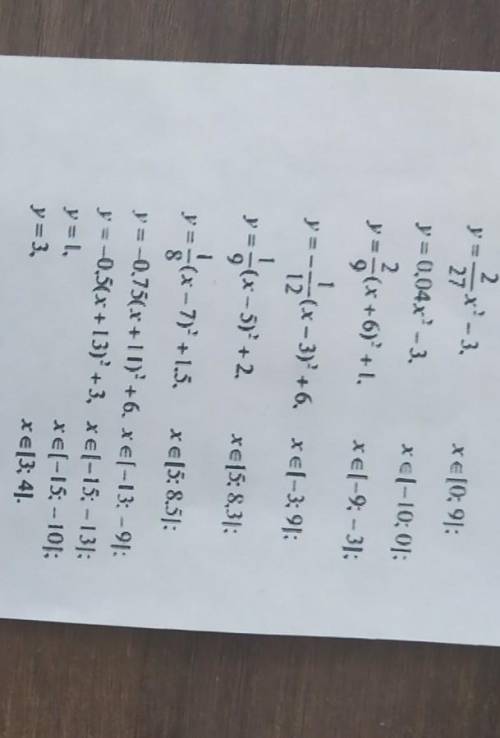 y = 2/27 x² − 3, x ∈ [0; 9];
y = 0,04x² − 3, x ∈ [−10; 0];
y = 2/9 (x + 6)² + 1, x ∈ [−9; −3];
y = − 1/12 (x − 3)² + 6, x ∈ [−3; 9];
y = 1/9 (x − 5)² + 2, x ∈ [5; 8,3];
y = 1/8 (x − 7)² + 1,5, x ∈ [5; 8,5];
y = −0,75(x + 11)² + 6, x ∈ [−13; −9];
y = −0,5(x + 13)² + 3, x ∈ [−15; −13];
y = 1, x ∈ [−15; −10];
y = 3, x ∈ [3; 4].